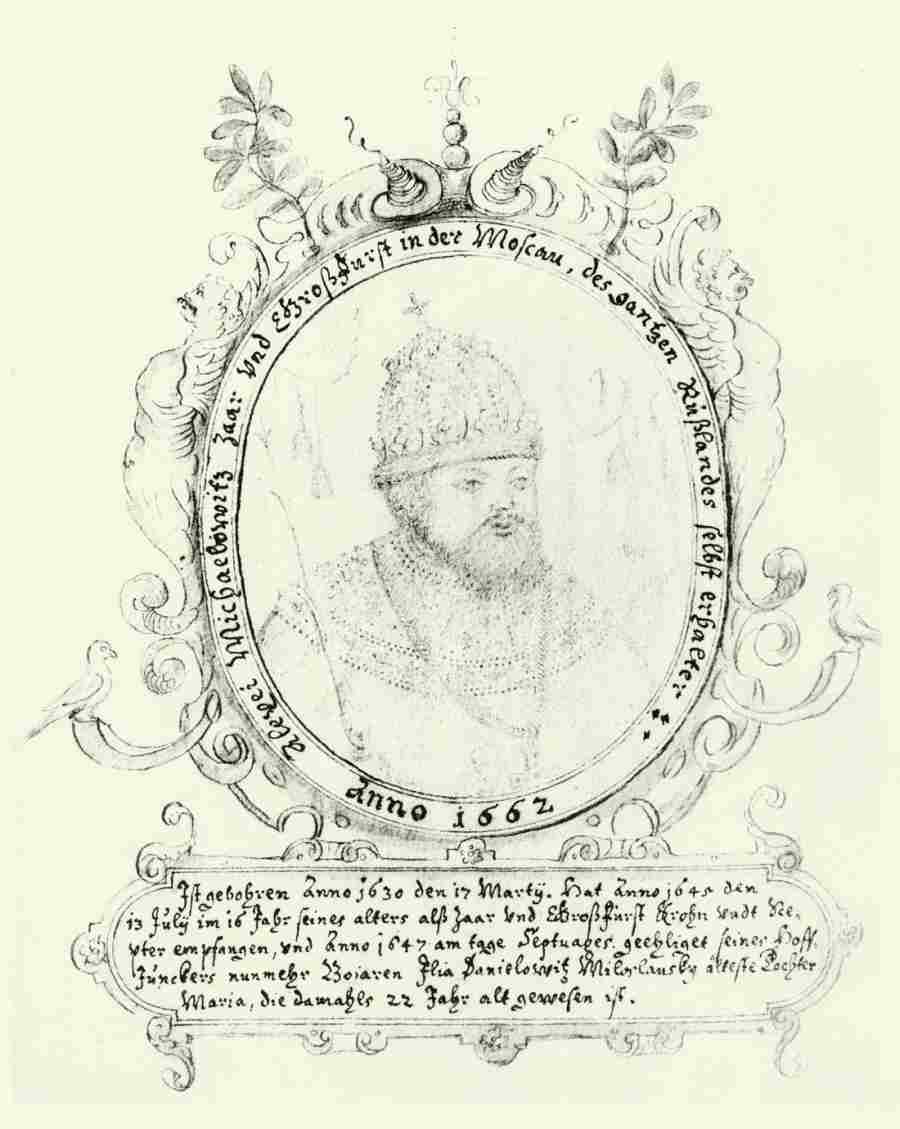 Alexei Michaelowitz Zaar vnd Großfurst in der Moscau, des gantzen Rußlandes selbst erhalter
Anno 1662
Ist gebohren Anno 1630 den 17 Martij. Hat Anno 1645 den
13 Julij im 16 Jahr seines alters alß Zaar vnd Großfurst Krohn vndt Sce,
pter empfangen, vnd Anno 1647 am tage Septuages. geehliget seines Hoff,
Junckers nunmehr Boiaren Ilia Danielowitz Miloslausky älteste Tochter
Maria, die damahls 22 Jahr alt gewesen ist.